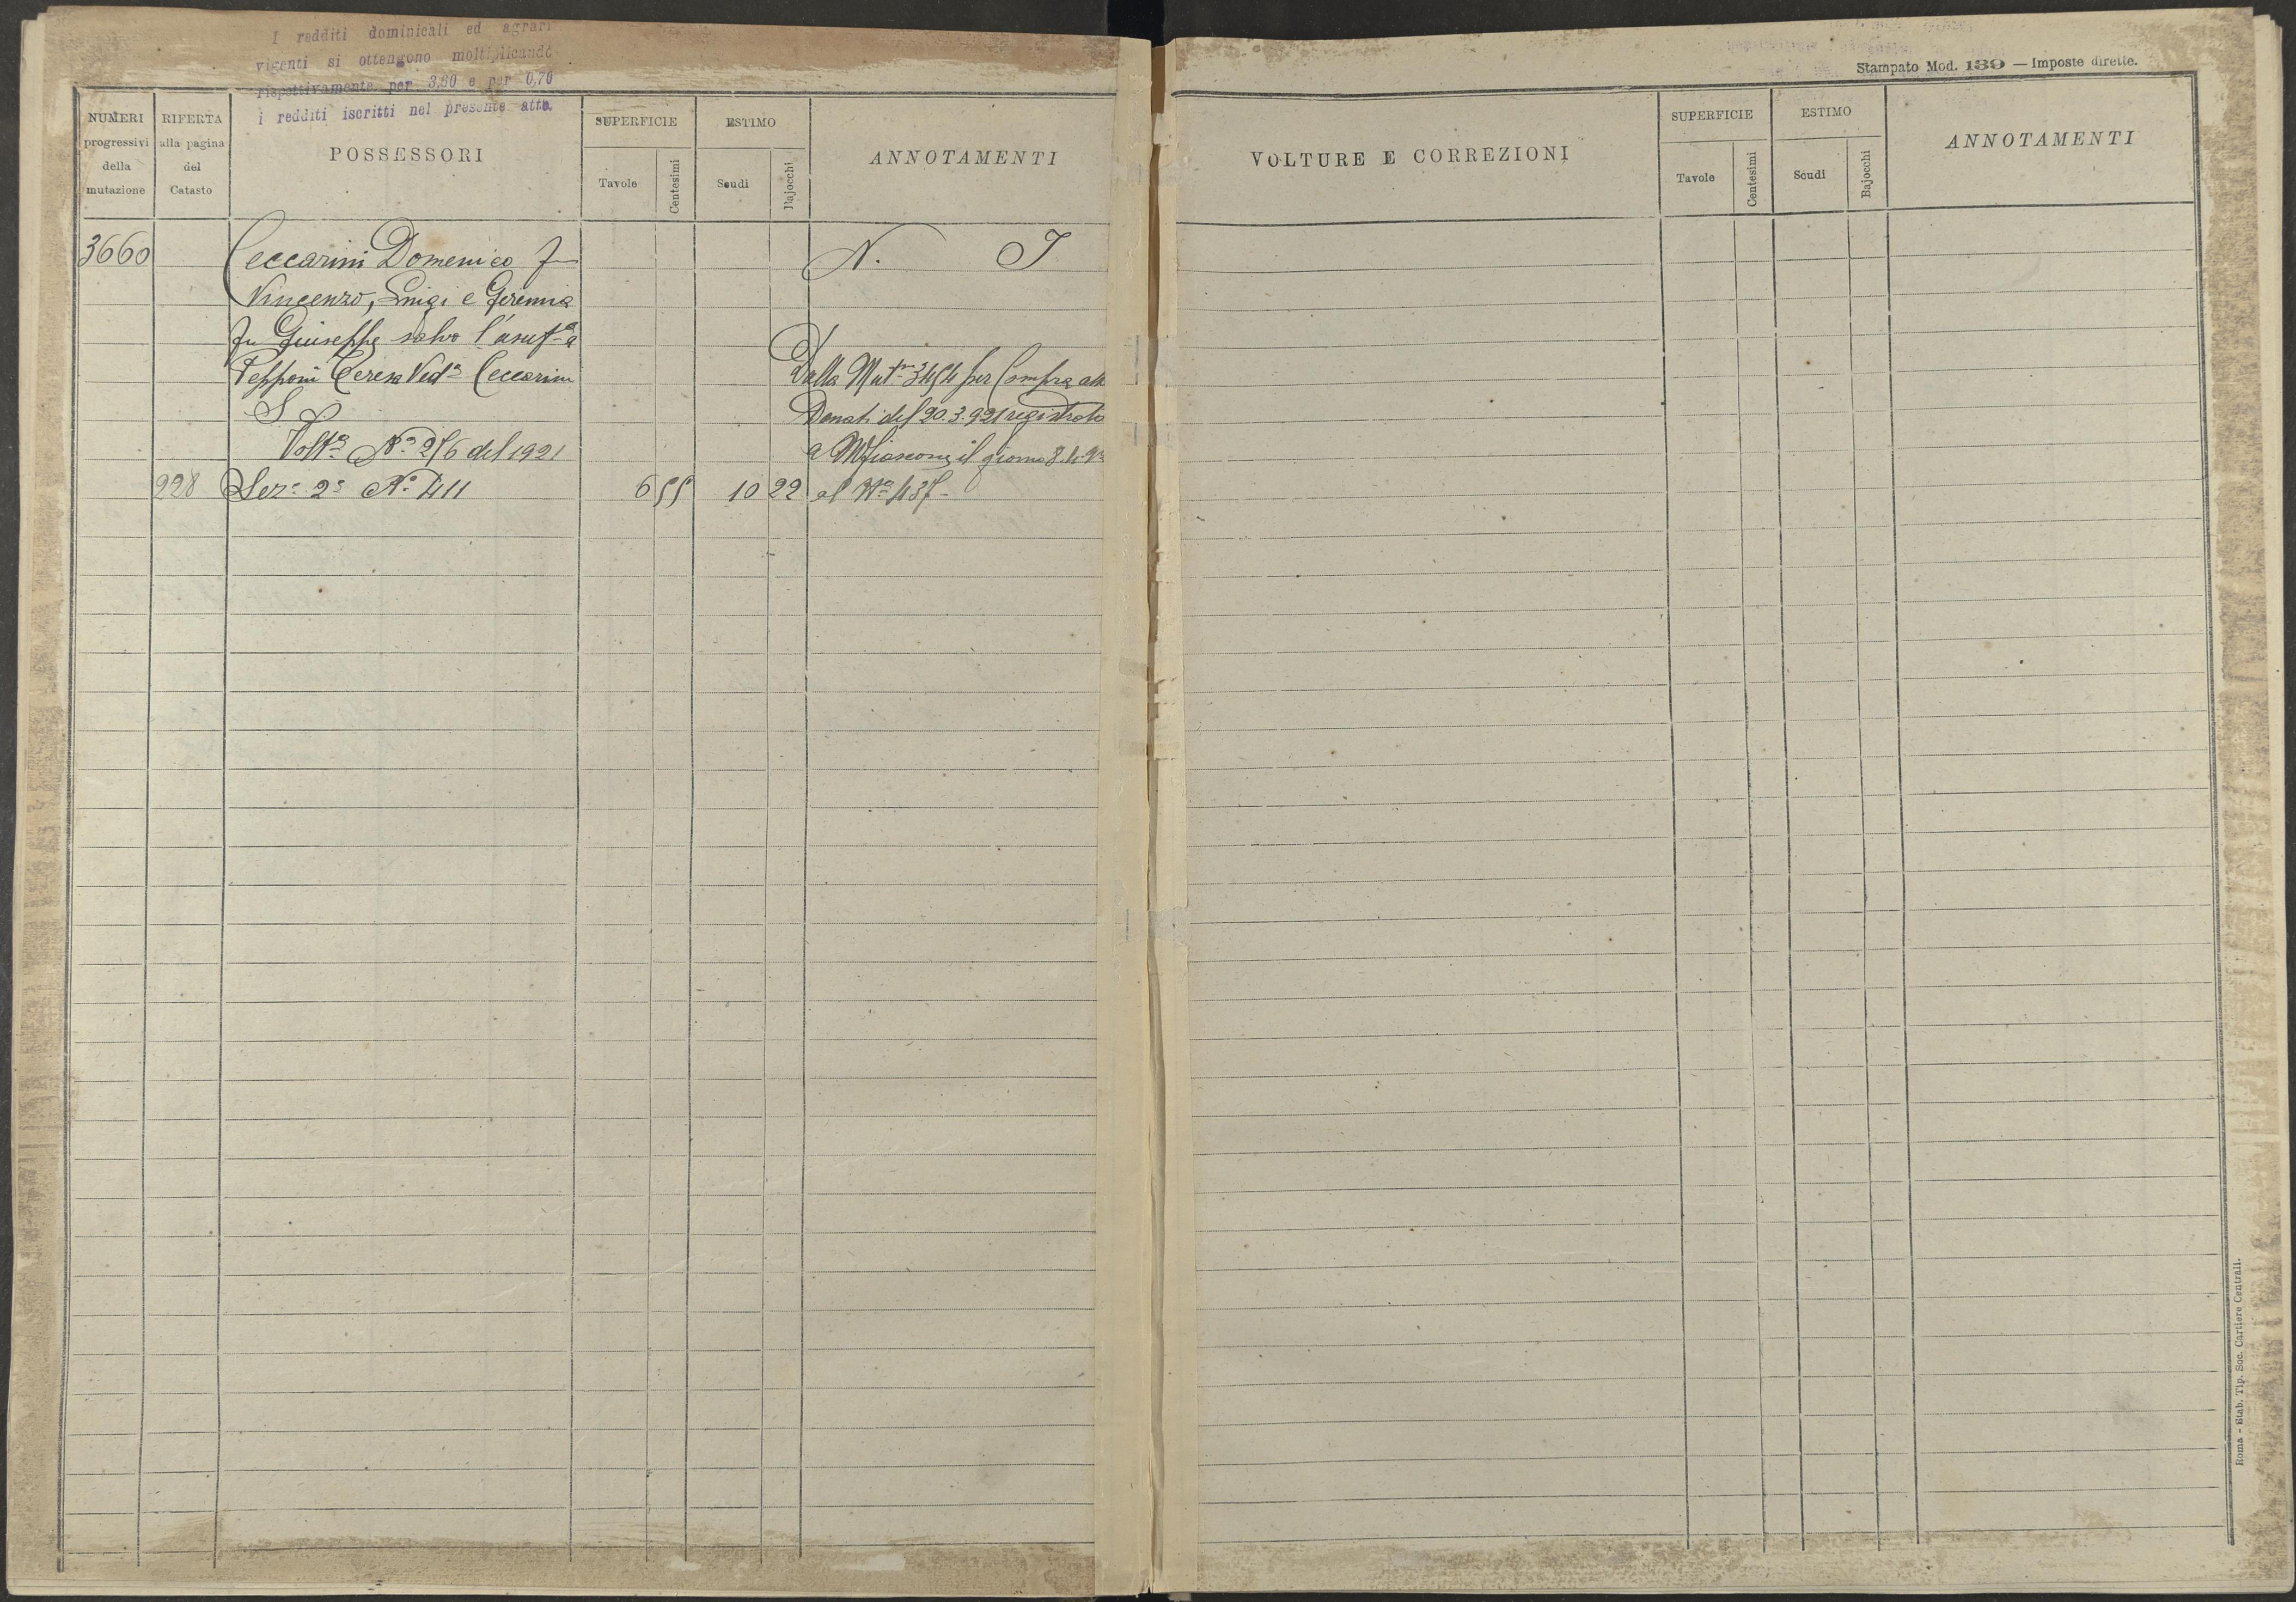 I redditi dominicali ed agrari
vigenti si ottengono moltiplicando
rispettivamente per 3,60 e per 0,70
i redditi iscritti nel presente atto.
NUMERI progressivi della mutazione
RIFERTA alla pagina del Catasto
POSSESSORI
SUPERFICIE
Tavole
Centesimi
ESTIMO
Scudi
Bajocchi
ANNOTAMENTI
3660 Ceccarini Domenico fu N. I
Vincenzo, Luigi e Geremia
fu Giuseppe salvo l'usuf.a a
Pepponi Teresa Ved.a Ceccarini Dalla Mut.ne 3454 per Compra
Donati del 20.3.921 registrato
Volt.a N.o 256 del 1921 a Mfiascone il giorno
228 Sez.e 2a N.o 411 6 55 10 22 al N.o 437-
Stampato Mod. 139 — Imposte dirette.
VOLTURE E CORREZIONI
SUPERFICIE
Tavole
Centesimi
ESTIMO
Scudi
Bajocchi
ANNOTAMENTI
Roma - Stab. Tip. Soc. Cartiere Centrali.